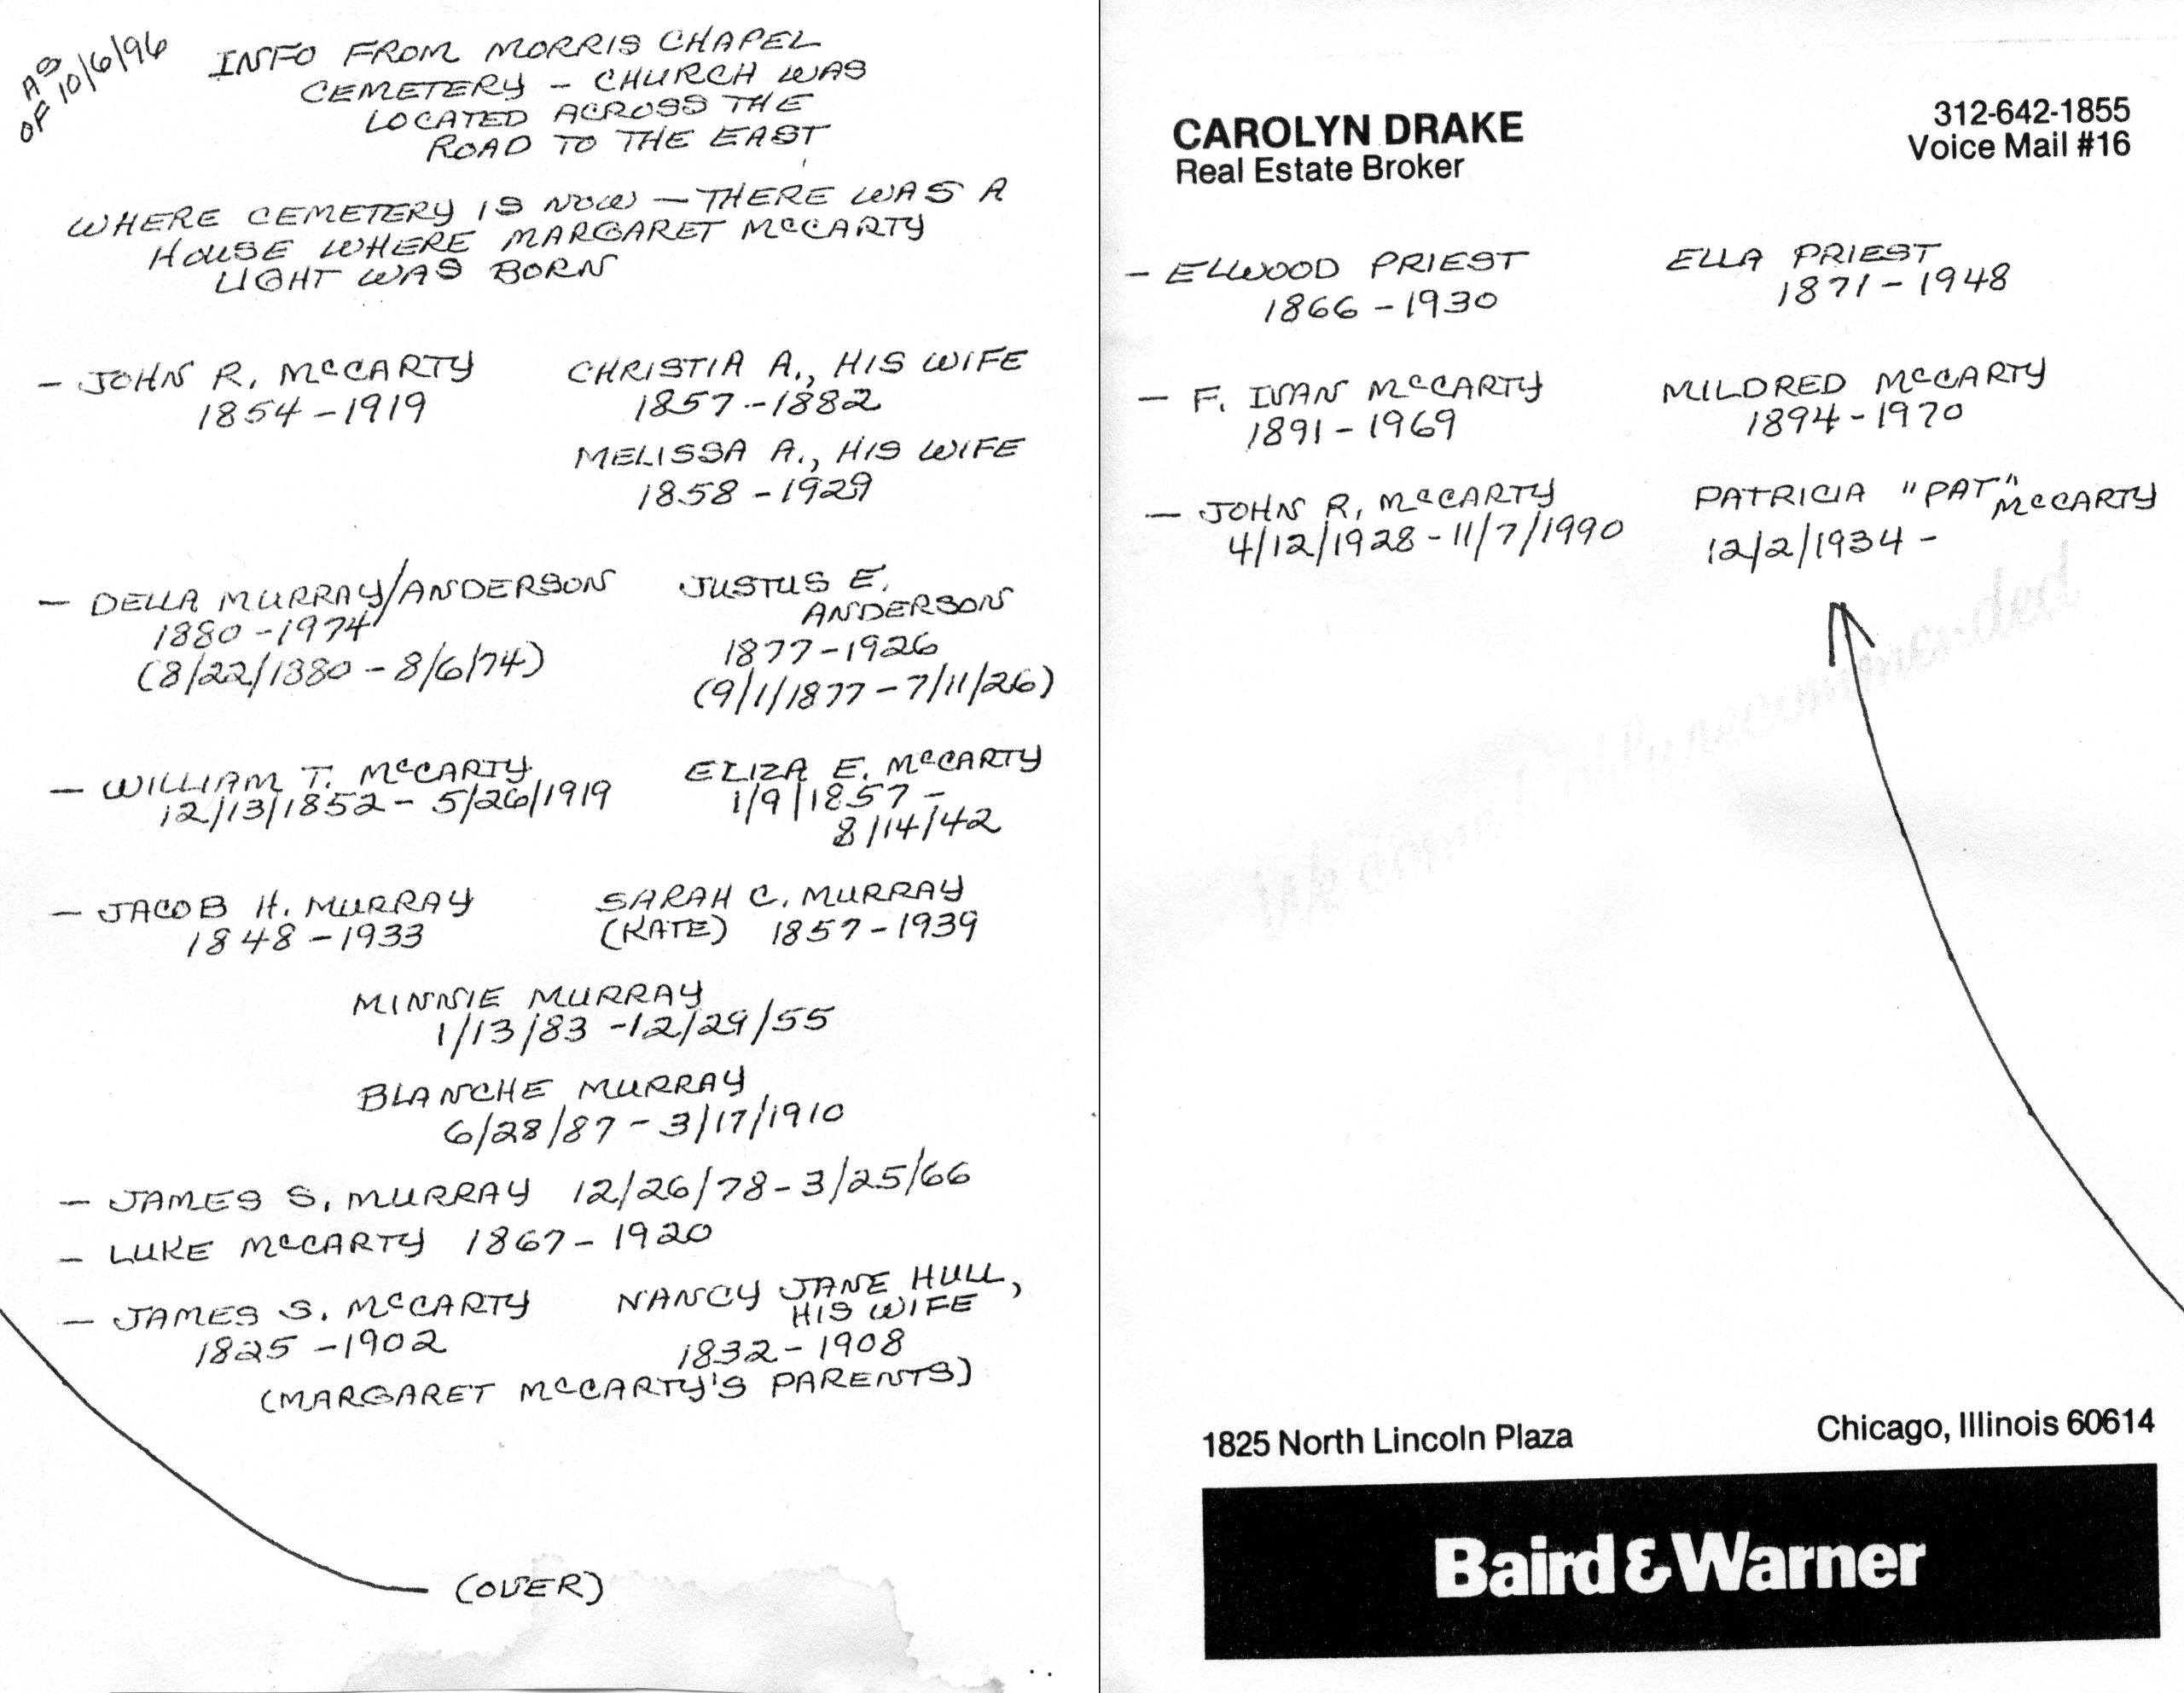 AS
OF 10/6/96
INFO FROM MORRIS CHAPEL
CEMETERY – CHURCH WAS
LOCATED ACROSS THE
ROAD TO THE EAST
WHERE CEMETERY IS NOW – THERE WAS A
HOUSE WHERE MARGARET MCCARTY
LIGHT WAS BORN
– JOHN R. MCCARTY CHRISTIA A., HIS WIFE
1854 – 1919 1857 – 1882
MELISSA A., HIS WIFE
1858 – 1929
– DELLA MURRAY/ANDERSON JUSTUS E.
ANDERSON
1880 – 1974 1877 – 1926
(8/22/1880 – 8/6/74) (9/1/1877 – 7/11/26)
– WILLIAM T. MCCARTY ELIZA E. MCCARTY
12/13/1852 – 5/26/1919 1/9/1857 –
8/14/42
– JACOB H. MURRAY SARAH C. MURRAY
1848 – 1933 (KATE) 1857 – 1939
MINNIE MURRAY
1/13/83 – 12/29/55
BLANCHE MURRAY
6/28/87 – 3/17/1910
– JAMES S. MURRAY 12/26/78 – 3/25/66
– LUKE MCCARTY 1867 – 1920
– JAMES S. MCCARTY NANCY JANE HULL,
HIS WIFE
1825 – 1902 1832 – 1908
(MARGARET MCCARTY'S PARENTS)
(OVER)
CAROLYN DRAKE 312-642-1855
Real Estate Broker Voice Mail #16
– ELLWOOD PRIEST ELLA PRIEST
1866 – 1930 1871 – 1948
– F. IVAN MCCARTY MILDRED MCCARTY
1891 – 1969 1894 – 1970
– JOHN R. MCCARTY PATRICIA "PAT" MCCARTY
4/12/1928 – 11/7/1990 12/2/1934 –
1825 North Lincoln Plaza Chicago, Illinois 60614
Baird & Warner